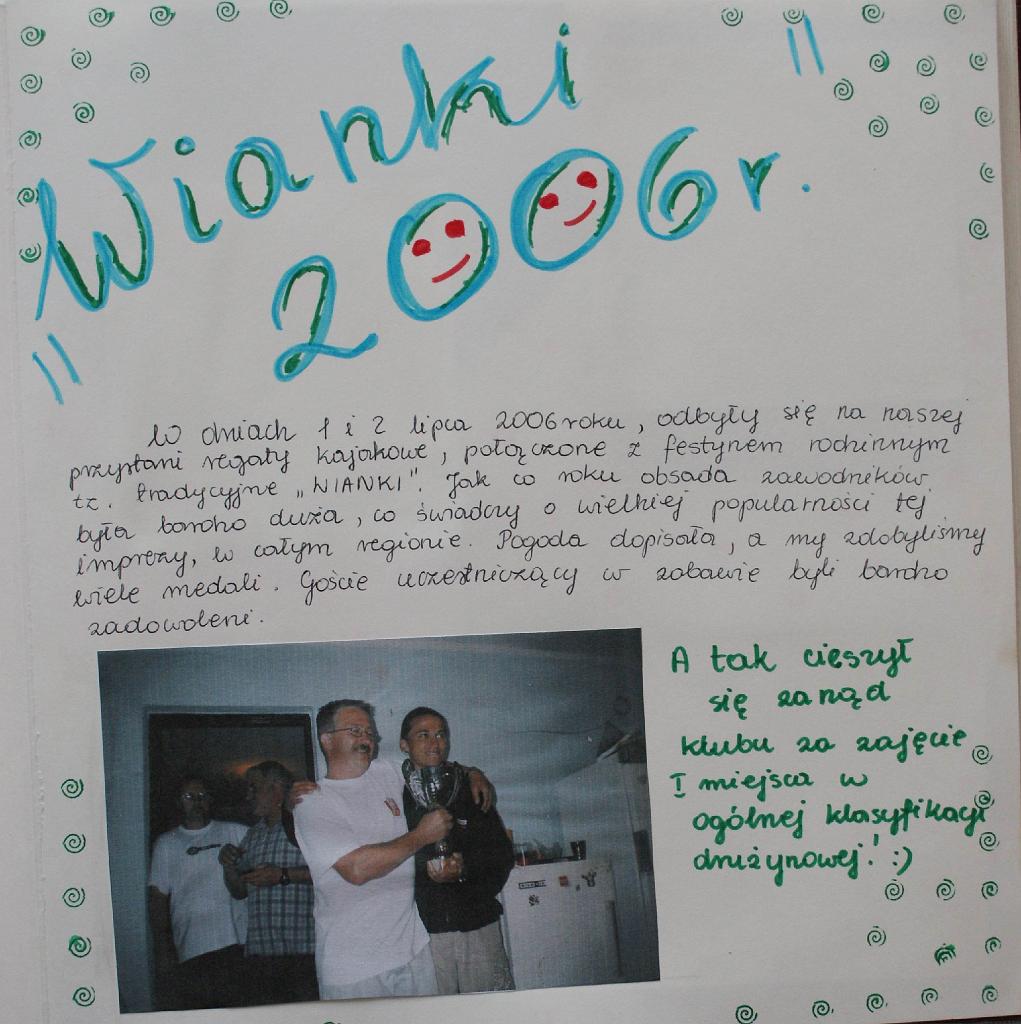 "Wianki"
2006 r.
W dniach 1 i 2 lipca 2006 roku, odbyły się na naszej
przystani regaty kajakowe, połączone z festynem rodzinnym
tz. tradycyjne „WIANKI”. Jak co roku obsada zawodników
była bardzo duża, co świadczy o wielkiej popularności tej
imprezy, w całym regionie. Pogoda dopisała, a my zdobyliśmy
wiele medali. Goście uczestniczący w zabawie byli bardzo
zadowoleni.
A tak cieszył
się zarząd
klubu za zajęcie
I miejsca w
ogólnej klasyfikacji
drużynowej! :)